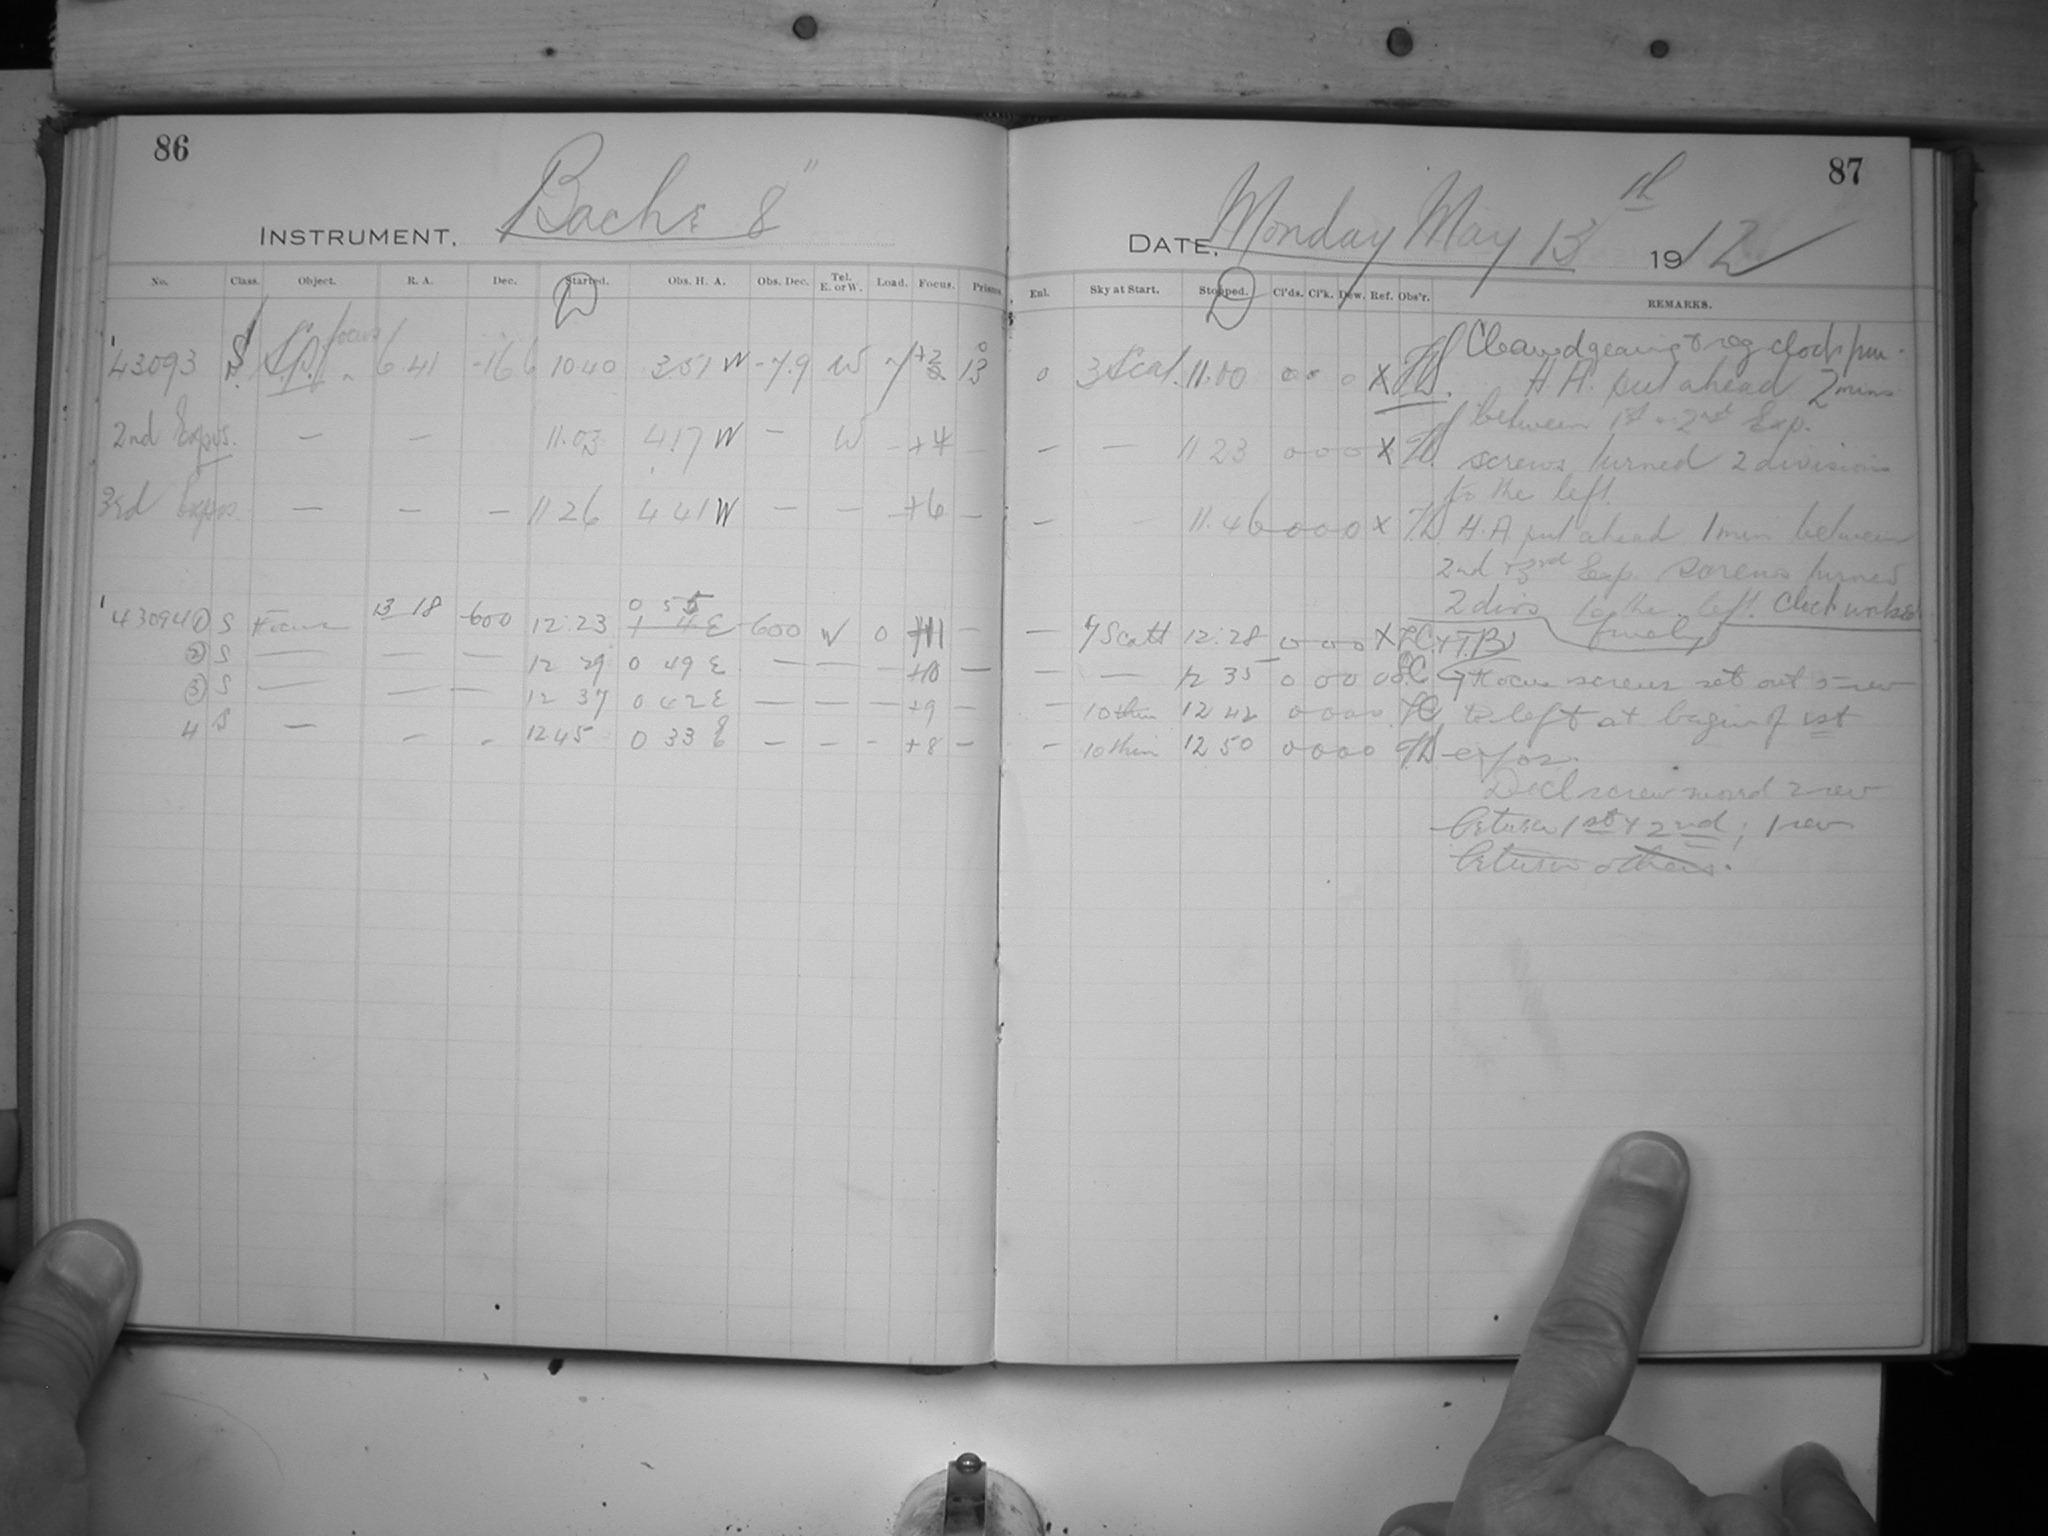 86
INSTRUMENT. Bache 8"
No. Class. Object. R. A. Dec. Started. Obs. H. A. Obs. Dec. Tel. E. or W. Load. Focus. Prisms.
43093 S focus 6 41 -16 6 10.40 3 51 W -7.9 W +2 13
2nd Expos. — — 11.03 4.17 W — W — +4 —
3rd Expos. — — — 11 26 4 41 W — — — +6 —
43094 ① S Focus 13 18 -600 12.23 0 55 E -600 W 0 +11 —
② S — — — 12 29 0 49 E — — — +10 —
③ S — — — 12 37 0 42 E — — — +9 —
4 S — — — 12 45 0 33 E — — — +8 —
87
DATE. Monday May 13th 1912
Enl. Sky at Start. Stopped. Cl'ds. Cl'k. Dew. Ref. Obs'r. REMARKS.
0 3 Scat. 11.00 0 0 0 X
— — 11 23 0 0 0 X
— 11.46 0 0 0 X
— 7 Scatt 12:28 0 0 0 X
— — 12 35 0 0 0 0
— 10 thin 12 42 0 0 0 0
— 10 thin 12 50 0 0 0 0
Cleaned gearing & reg clock
H. A. put ahead 2 mins
between 1st & 2nd Exp.
screws turned 2 divisions
to the left
H. A put ahead 1 min between
2nd & 3rd Exp. screws turned
2 divs to the left. Clock worked
finely
Focus screws set out 5 rev
to left at begin of 1st
expos.
Decl screw moved 2 rev
between 1st & 2nd; 1 rev
between others.